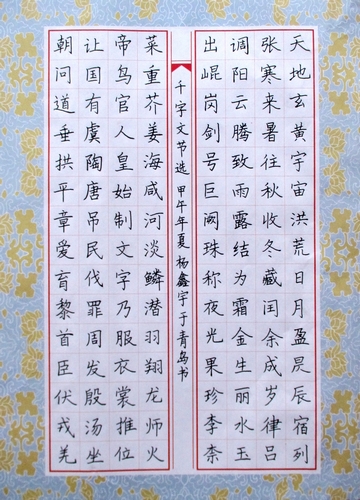 天地玄黄宇宙洪荒日月盈昃辰宿列
张寒来暑往秋收冬藏闰余成岁律吕
调阳云腾致雨露结为霜金生丽水玉
出崐岗剑号巨阙珠称夜光果珍李柰
千字文节选 甲午年夏杨鑫宇于青岛书
菜重芥姜海咸河淡鳞潜羽翔龙师火
帝鸟官人皇始制文字乃服衣裳推位
让国有虞陶唐吊民伐罪周发殷汤坐
朝问道垂拱平章爱育黎首臣伏戎羌